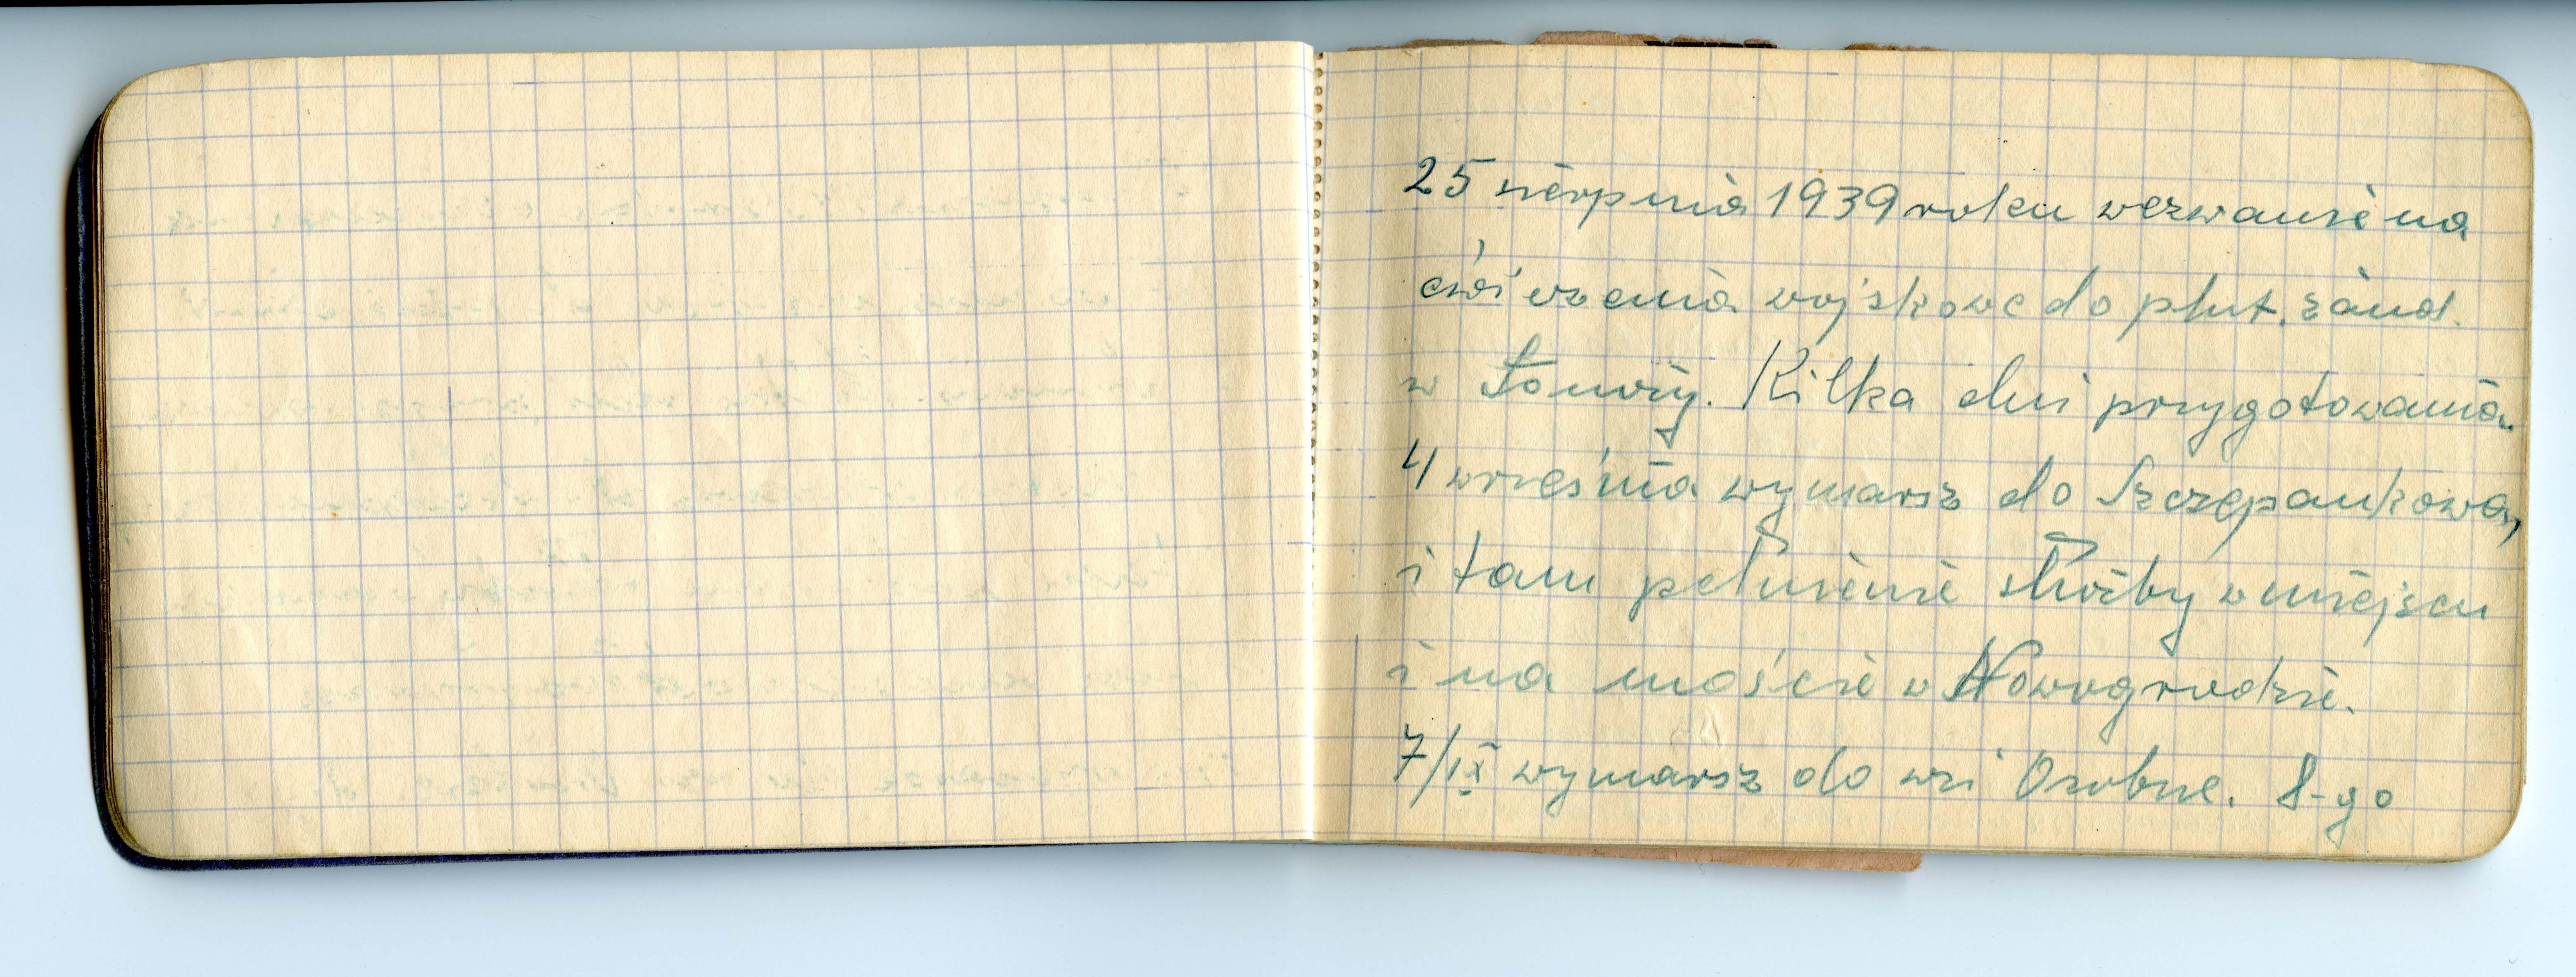 25 sierpnia 1939 roku wezwanie na
ćwiczenia wojskowe do plut. żand.
w Łomży. Kilka dni przygotowania.
4 września wymarsz do Szczepankowa,
i tam pełnienie służby w miejscu
i na moście w Nowogrodzie.
7/IX wymarsz do wsi 8-go